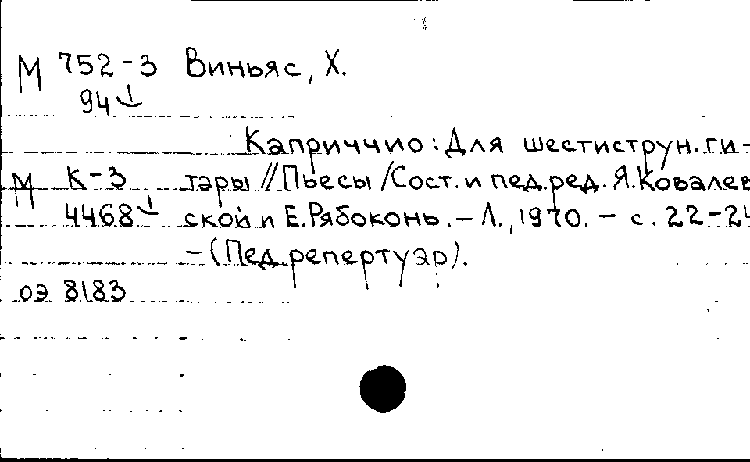 М 752-3 Виньяс, Х.
94↓
Каприччио: Для шестиструн. ги-
М К-3 тары // Пьесы / Сост. и пед. ред. Я. Ковалев
4468↓ ской и Е. Рябоконь. – Л., 1970. – с. 22-24
– (Пед. репертуар).
оэ 8183